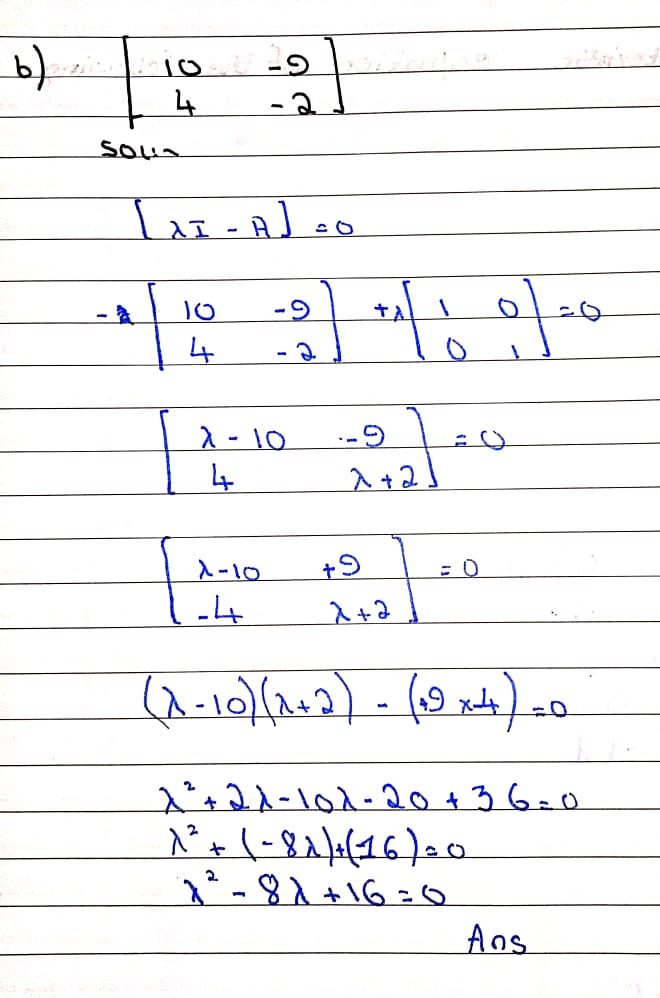 b) [ 10 -9
4 -2 ]
Soln
[ λI - A ] = 0
- [ 10 -9 ] + λ [ 1 0 ] = 0
[ 4 -2 ] [ 0 1 ]
[ λ - 10 -9 ] = 0
[ 4 λ + 2 ]
[ λ - 10 +9 ] = 0
[ -4 λ + 2 ]
(λ - 10)(λ + 2) - (+9 x -4) = 0
λ² + 2λ - 10λ - 20 + 36 = 0
λ² + (-8λ) + (16) = 0
λ² - 8λ + 16 = 0
Ans